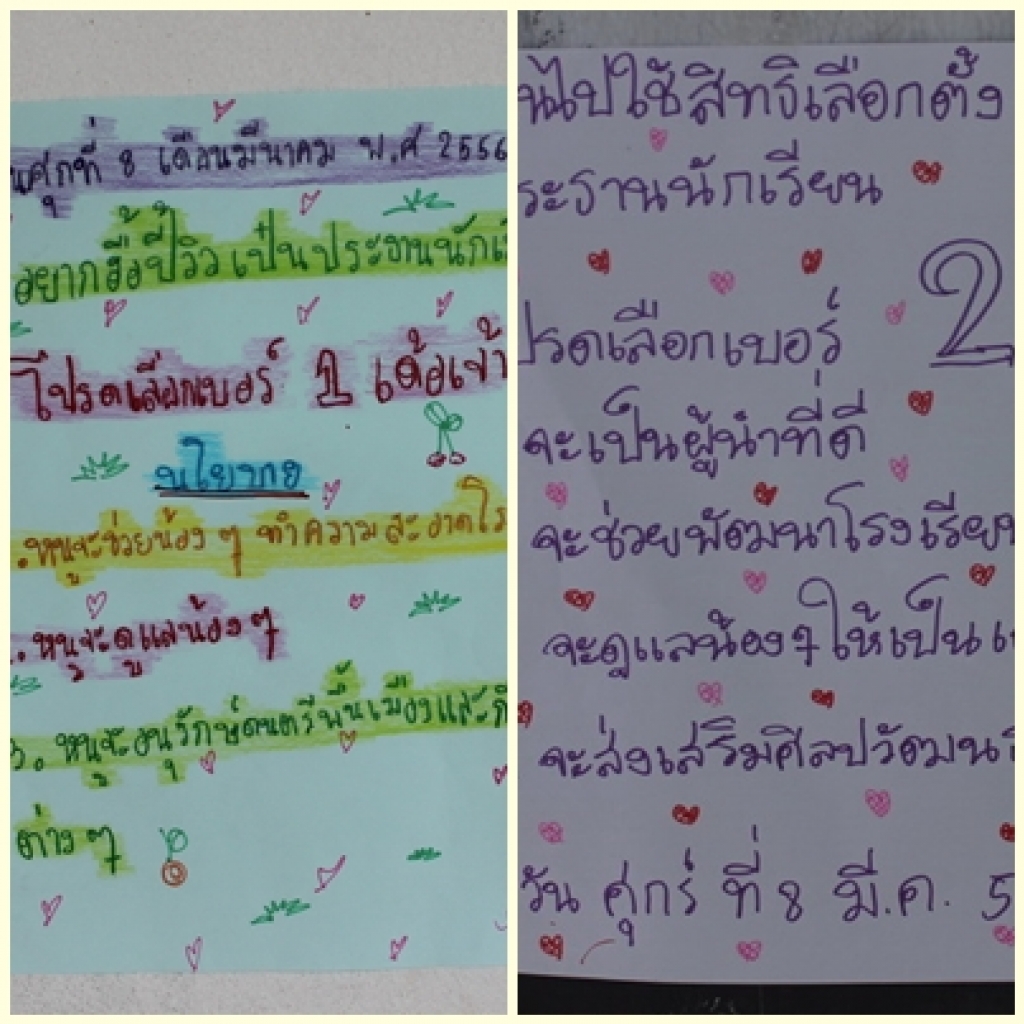 นศุกที่ 8 เดือนมีนาคม พ.ศ 2556
อยากฮื้อปี้วิว เป็นประธานนักเรี
โปรดเลือกเบอร์ 1 เด้อเจ้า
นโยบาย
.หนูจะช่วยน้อง ๆ ทำความสะอาดโร
.หนูจะดูแลน้อง ๆ
3. หนูจะอนุรักษ์ดนตรีพื้นเมืองและกี
ต่าง ๆ
นไปใช้สิทธิเลือกตั้ง
ระธานนักเรียน
ปรดเลือกเบอร์ 2
จะเป็นผู้นำที่ดี
จะช่วยพัฒนาโรงเรียน
จะดูแลน้องๆให้เป็นเ
จะส่งเสริมศิลปวัฒนธ
วัน ศุกร์ ที่ 8 มี.ค. 5